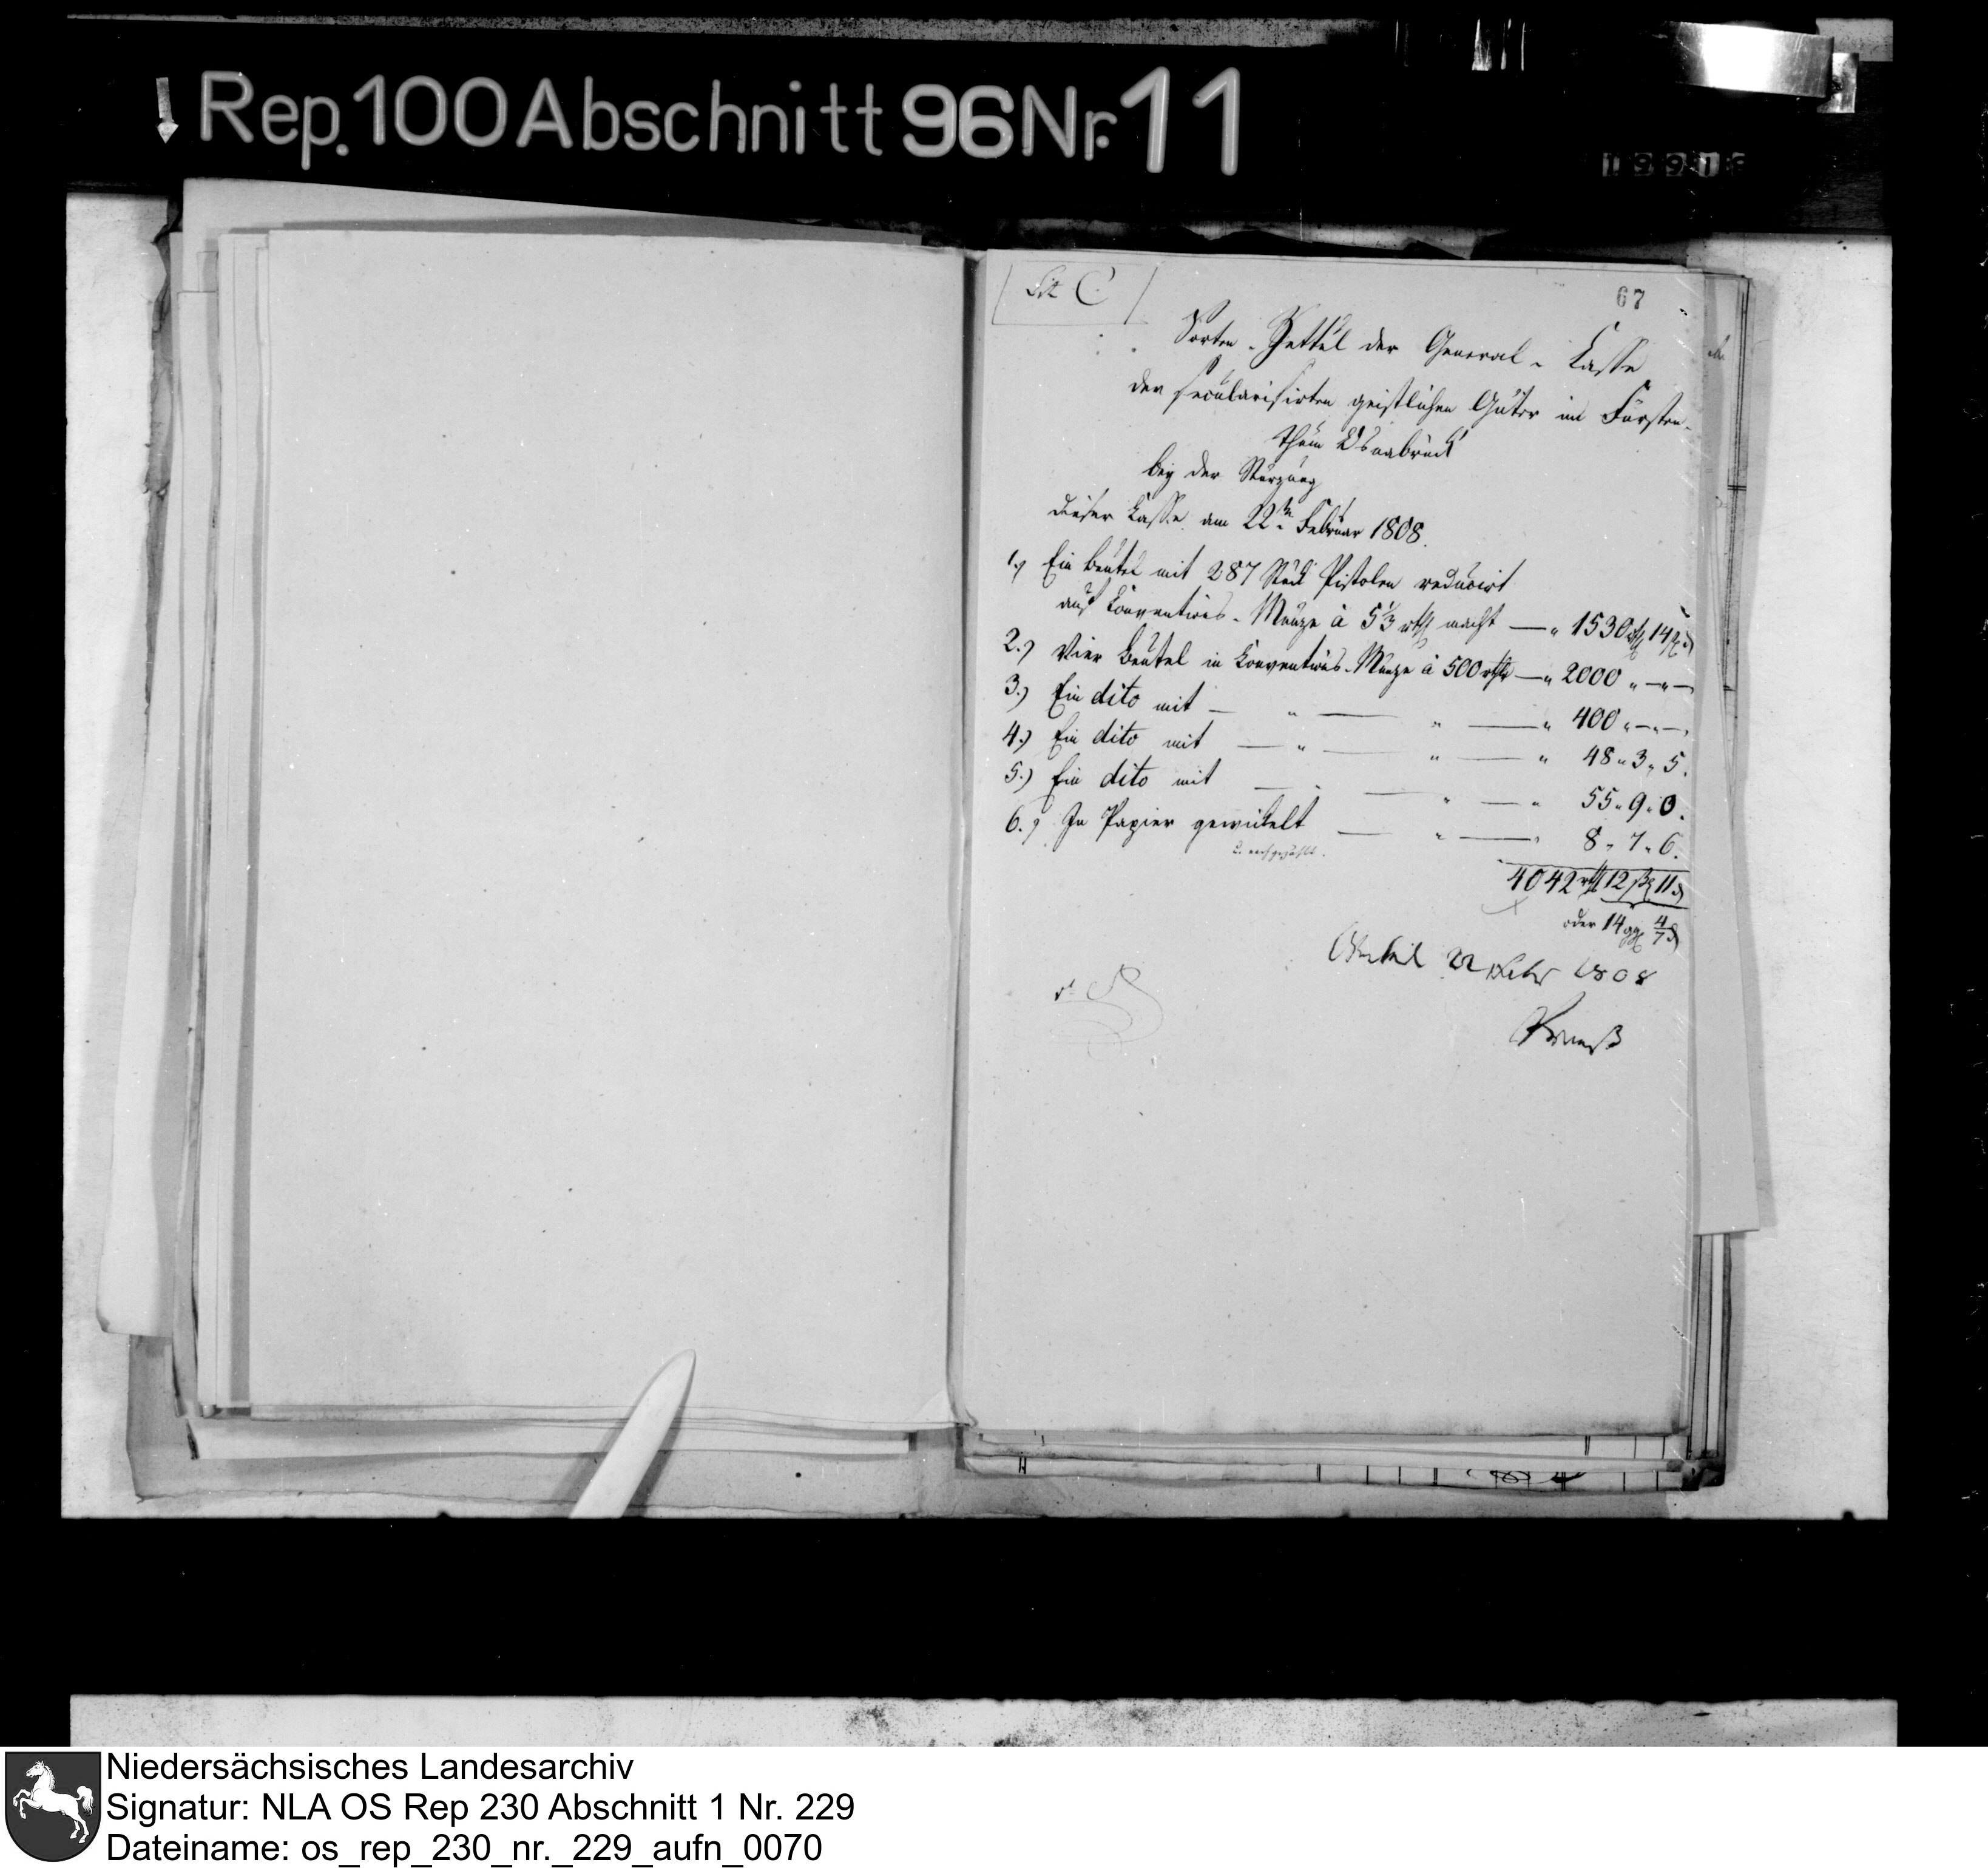 Rep. 100 Abschnitt 96 Nr. 11
Lit C
67
Sorten-Zettul der General-Casse
der secularisirten geistlichen Güter im Fürsten-
thum Osnabrück
bey der Stürzung
dieser Casse am 22ten Februar 1808.
1.) Ein Beutel mit 287 Stück Pistolen reducirt
auf Conventions-Münze à 5 1/3 rthlr macht — " 1530 rthlr 14 ßl
2.) Vier Beutel in Conventions-Münze à 500 rthlr — " 2000 " — " —
3.) Ein dito mit — " — " — " 400 " — " —
4.) Ein dito mit — " — " — " 48 " 3 " 5.
5.) Ein dito mit — " — " — " 55 " 9 " 0.
6.) In Papier gewickelt — " — " 8 " 7 " 6.
u. nachgezählt.
4042 rthlr 12 ßl 11 d
oder 14 ggl 4/7 d
22 Febr 1808
Niedersächsisches Landesarchiv
Signatur: NLA OS Rep 230 Abschnitt 1 Nr. 229
Dateiname: os_rep_230_nr._229_aufn_0070